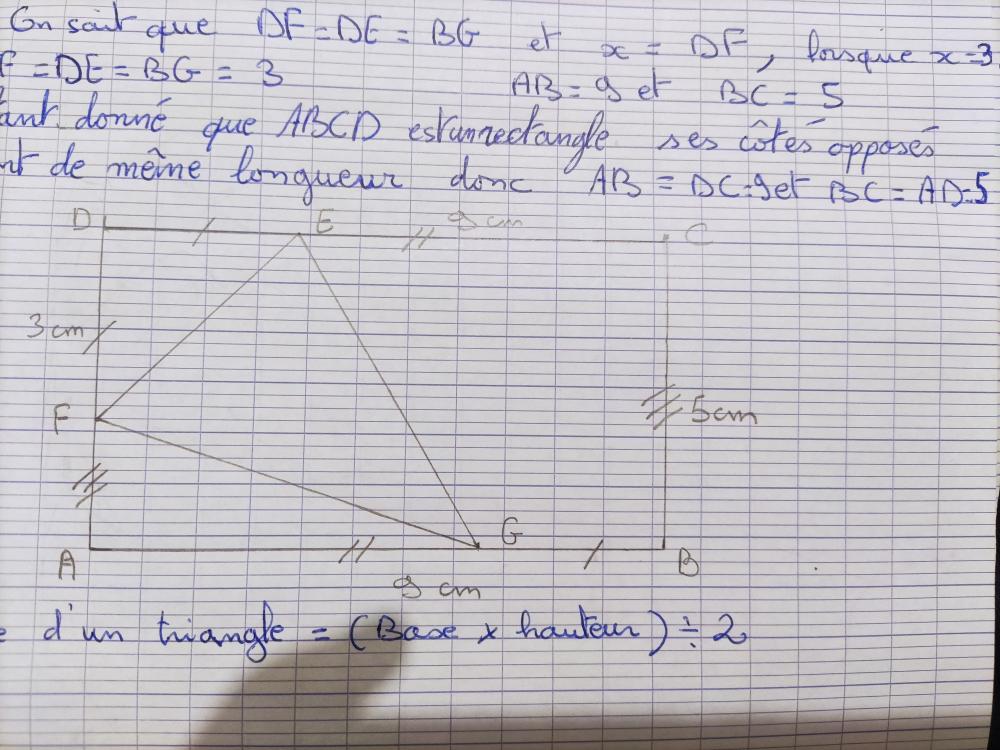 On sait que DF = DE = BG et x = DF, lorsque x = 3
F = DE = BG = 3 AB = 9 et BC = 5
ant donné que ABCD est un rectangle ses côtés opposés
nt de même longueur donc AB = DC = 9 et BC = AD = 5
D E 9 cm C
3 cm
F 5 cm
G
A B
9 cm
e d'un triangle = (Base × hauteur) ÷ 2